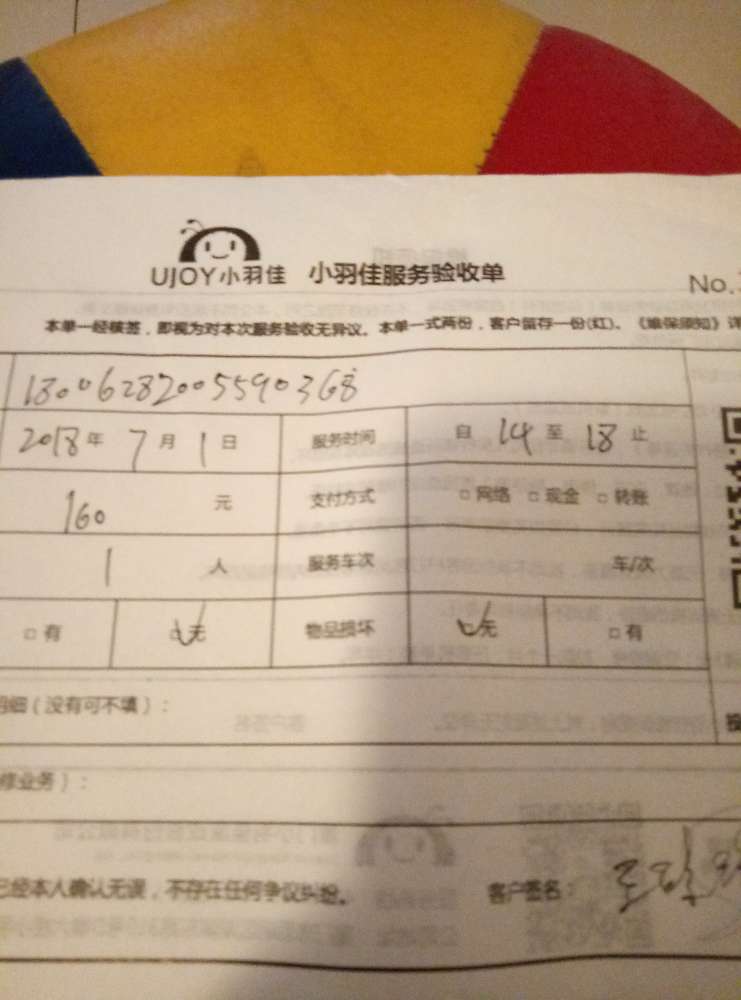 UJOY小羽佳 小羽佳服务验收单
No.
本单一经核签，即视为对本次服务验收无异议。本单一式两份，客户留存一份(红)。《维保须知》详
18006282005590368
2018年 7月 1日 服务时间 自 14 至 18 止
160 元 支付方式 □网络 □现金 □转账
1 人 服务车次 车/次
□有 □无 物品损坏 □无 □有
明细（没有可不填）：
修业务）：
已经本人确认无误，不存在任何争议纠纷。 客户签名：